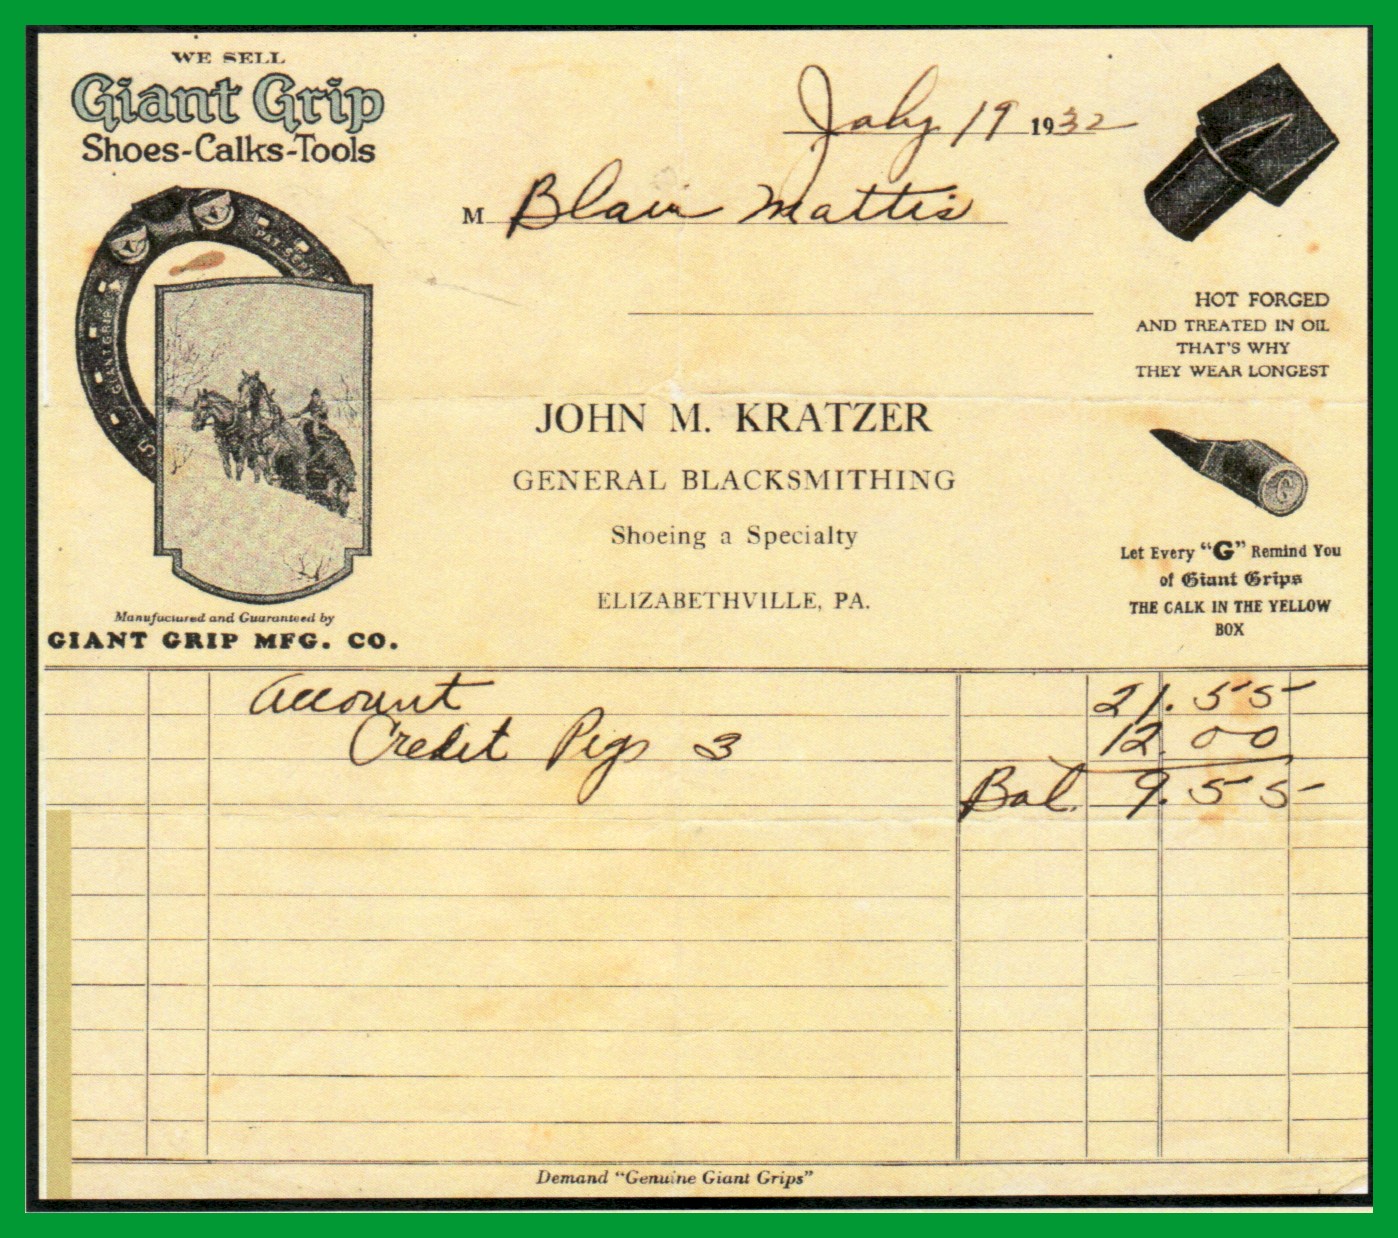 WE SELL
Giant Grip
Shoes-Calks-Tools
July 19 1932
M Blair Mattis
PAT. SEPT.
GIANT GRIP
5
HOT FORGED
AND TREATED IN OIL
THAT'S WHY
THEY WEAR LONGEST
JOHN M. KRATZER
GENERAL BLACKSMITHING
Shoeing a Specialty
ELIZABETHVILLE, PA.
G
Let Every "G" Remind You
of Giant Grips
THE CALK IN THE YELLOW
BOX
Manufactured and Guaranteed by
GIANT GRIP MFG. CO.
Account 21.55
Credit Pigs 3 12.00
Bal. 9.55
Demand "Genuine Giant Grips"